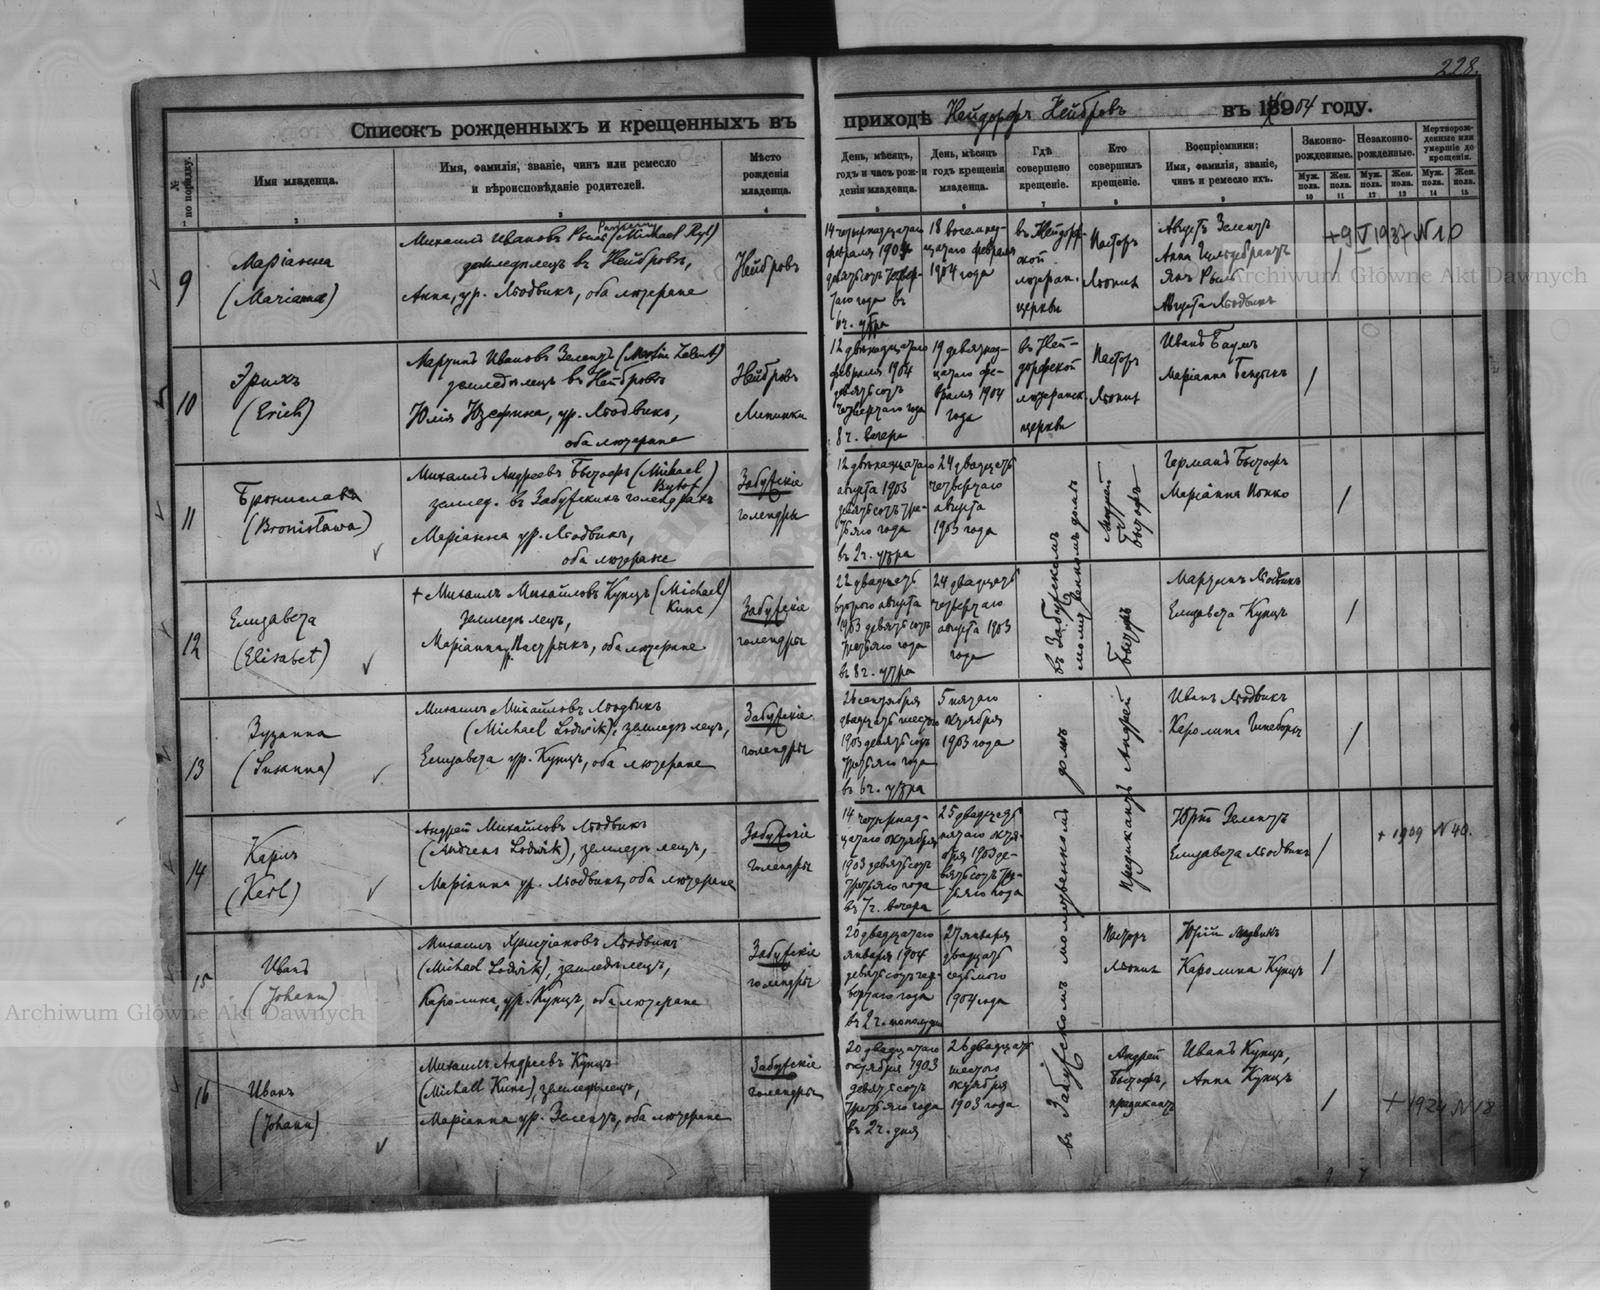 228.
Списокъ рожденныхъ и крещенныхъ въ приходѣ Нейдорфъ Нейбровъ въ 1904 году.
№ по порядку.
Имя младенца.
Имя, фамилія, званіе, чинъ или ремесло
и вѣроисповѣданіе родителей.
Мѣсто
рожденія
младенца.
День, мѣсяцъ,
годъ и часъ рож-
денія младенца.
День, мѣсяцъ
и годъ крещенія
младенца.
Гдѣ
совершено
крещеніе.
Кто
совершилъ
крещеніе.
Воспріемники:
Имя, фамилія, званіе,
чинъ и ремесло ихъ.
Законно-
рожденные.
Незаконно-
рожденные.
Мертворож-
денные или
умершіе до
крещенія.
Муж. пола.
Жен. пола.
Муж. пола.
Жен. пола.
Муж. пола.
Жен. пола.
1 2 3 4 5 6 7 8 9 10 11 12 13 14 15
9
Маріанна
(Marianna)
Михаилъ Ивановъ (Michael Ryl)
земледѣлецъ въ Нейбровѣ,
Анна, ур. Людвикъ, оба лютеране
Нейбровъ
14 четырнадцатаго
февраля 1904
девятьсотъ четвер-
таго года въ
6 ч. утра
18 восемнад-
цатаго февраля
1904 года
въ Нейдорф-
ской
лютеран.
церкви
Пасторъ
Августъ Зелентъ
Анна Гильдебрантъ
Янъ
Августа Людвикъ
/
+ 9 V 1937 № 10
10
Эрихъ
(Erich)
Мартинъ Ивановъ Зелентъ (Martin Zelent)
земледѣлецъ въ Нейбровѣ
Юлія Юзефина, ур. Людвикъ,
оба лютеране
Нейбровъ
Липинки
12 двѣнадцатаго
февраля 1904
девятьсотъ
четвертаго года
8 ч. вечера
19 девятнад-
цатаго фе-
враля 1904
года
въ Ней-
дорфской
лютеранск.
церкви
Пасторъ
Иванъ Баумъ
Маріанна
/
11
Брониславa
(Bronisława)
Михаилъ Андреевъ Бытофъ (Michael
Bytof)
землед. въ Забужскихъ голендрахъ
Маріанна ур. Людвикъ,
оба лютеране
Забужскіе
голендры
12 двѣнадцатаго
августа 1903
девятьсотъ тре-
тьяго года
въ 2 ч. утра
24 двадцать
четвертаго
августа
1903 года
въ Забужскомъ
молитвенномъ домѣ
Андрей
Бытофъ
Германъ Бытофъ
Маріанна Попко
/
12
Елизавета
(Elisabet)
+ Михаилъ Михайловъ Кунцъ (Michael
Kunc)
земледѣлецъ,
Маріанна ур. Пастрыкъ, оба лютеране
Забужскіе
голендры
22 двадцать
второго августа
1903 девятьсотъ
третьяго года
въ 8 ч. утра
24 двадцать
четвертаго
августа 1903
года
Мартинъ Людвикъ
Елизавета Кунцъ
/
13
Зузанна
(Susanna)
Михаилъ Михайловъ Людвикъ
(Michael Lodwik), земледѣлецъ,
Елизавета ур. Кунцъ, оба лютеране
Забужскіе
голендры
26 сентября
двадцать шестого
1903 девятьсотъ
третьяго года
въ 6 ч. утра
5 пятаго
октября
1903 года
въ Забужскомъ молитвенномъ домѣ
Предикантъ Андрей Бытофъ
Иванъ Людвикъ
Каролина
/
14
Карлъ
(Karl)
Андрей Михайловъ Людвикъ
(Andreas Lodwik), земледѣлецъ,
Маріанна ур. Людвикъ, оба лютеране
Забужскіе
голендры
14 четырнад-
цатаго октября
1903 девятьсотъ
третьяго года
въ 7 ч. вечера
25 двадцать
пятаго октя-
бря 1903 де-
вятьсотъ тре-
тьяго года
Юрій Зелентъ
Елизавета Людвикъ
/
+ 1909 № 40.
15
Иванъ
(Johann)
Михаилъ Христіановъ Людвикъ
(Michael Lodwik), земледѣлецъ,
Каролина, ур. Кунцъ, оба лютеране
Забужскіе
голендры
20 двадцатаго
января 1904
девятьсотъ чет-
вертаго года
въ 2 ч. пополудни
27 января
двадцать
седьмого
1904 года
Пасторъ
Юрій Людвикъ
Каролина Кунцъ
/
16
Иванъ
(Johann)
Михаилъ Андреевъ Кунцъ
(Michael Kunc), земледѣлецъ,
Маріанна ур. Зелентъ, оба лютеране
Забужскіе
голендры
20 двадцатаго
октября 1903
девятьсотъ
третьяго года
въ 2 ч. дня
26 двадцать
шестого
октября
1903 года
Андрей
Бытофъ,
предикантъ
Иванъ Кунцъ,
Анна Кунцъ
/
+ 1924 № 18
Archiwum Główne Akt Dawnych
Archiwum Główne Akt Dawnych